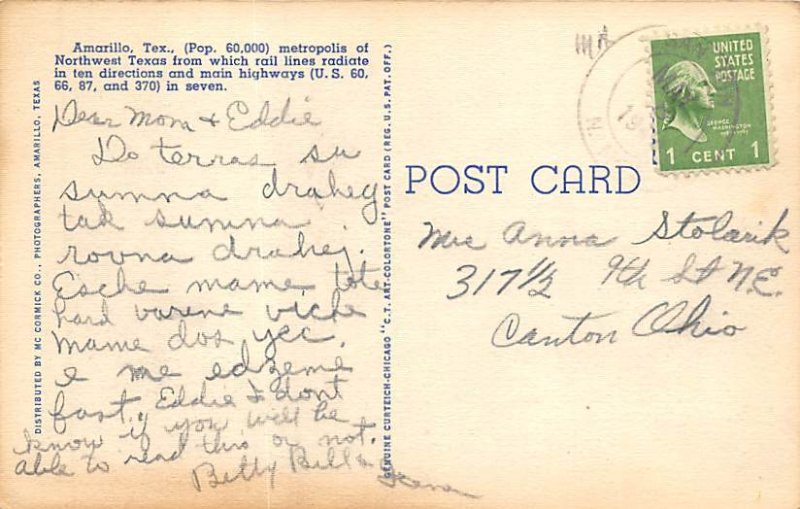 Amarillo, Tex., (Pop. 60,000) metropolis of
Northwest Texas from which rail lines radiate
in ten directions and main highways (U.S. 60,
66, 87, and 370) in seven.
Dear Mom & Eddie
Do terras su
summa draheg
tak summa
rovna drahej.
Esche mame tote
hard varene viche
mame dos yec.
e me edzeme
fast. Eddie I dont
know if you will be
able to read this or not.
Betty Bill &
DISTRIBUTED BY MC CORMICK CO., PHOTOGRAPHERS, AMARILLO, TEXAS
GENUINE CURTEICH-CHICAGO "C.T. ART-COLORTONE" POST CARD (REG. U.S. PAT. OFF.)
POST CARD
UNITED
STATES
POSTAGE
GEORGE
WASHINGTON
1 CENT 1
Mrs Anna Stolarik
317 1/2 9th St N.E.
Canton Ohio